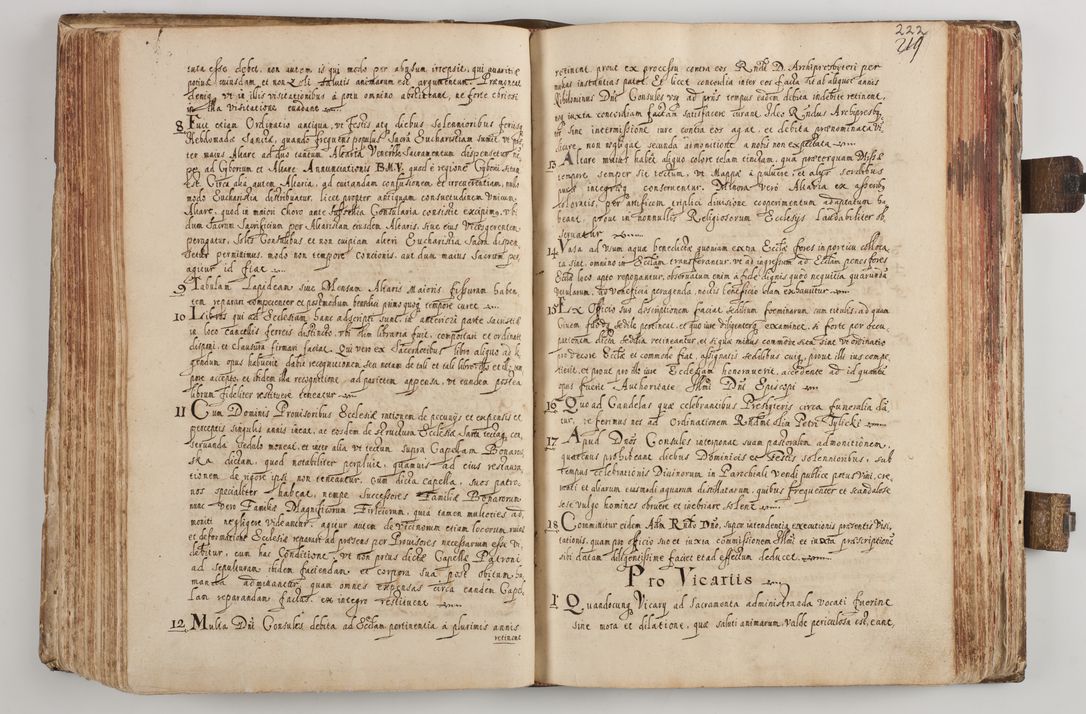 iuta esse debet, non autem is qui modo per abusum irrepsit, qui quaritie
potius eiusdam et non Zeli salutis animarum eos arguentium. Promoneat
deniq. ut in illis visitationibus à potu omnino abstineant, ne forte ebriosi
in illa visitatione euadant
8 Fuit etiam Ordinatio antiqua, ut Festis atq diebus solennioribus ferijs
Hebdomadæ Sanctæ, quando frequens populus Sacrā Eucharistiam sumit, ut
ter maius Altare ad duo tantum Altaria Venerble Sacramentum dispensetur
pe, ad Cyborum et Altare Annunciationis B.M.V. quod è regione Cyborij situm
est. Circa alia autem Altaria, ad euitandam confusionem et irreuerentiam, nullo
modo Eucharistia distribuatur, licet propter antiquam consuetudinem Vnicum
Altare, quod in maiori Choro ante Subsellia Consularia consistit excipimꝰ. vbi
dum Sacrum Sacrificium per Altaristam eiusdem Altaris, siue eius Vicesgerentem
peragatur, Solis Consulibus et non cuipiam alteri Eucharistia Sacra dispen
setur permittimus, modo non tempore concionis, aut dum maius Sacrum per
agitur id fiat
9 Tabulam Lapideam siue Mensam Altaris Maioris fissuram haben
tem reparari competenter et postmodum benedici primo quoq tempore curet
10 Libros qui ad Ecclesiam hanc adscripti sunt, in anteriori parte sacristiæ
in loco cancellis ferreis distincto, vbi olim libraria fuit, comportari et ordinate
disponi, et clausura firmari faciat. Qui vero ex Sacerdotibus libro aliquo ad le
gendum opus habuerit dabit recognitionem seu notam de tali et tali libro
pore accepto, et ibidem illa recognitione ad parietem appensa, ut eundem postea
librum fideliter restituere teneatur
11 Cum Dominis Prouisoribus Ecclesiæ rationem de pecunijs et expensis et
perceptis singulis annis ineat, ac eosdem de structura Ecclesiæ Sartā tectaq con
seruanda sedulo moneat, et inter alia ut tectum supra Capellam Bonarow
ska dictam, quod notabiliter perpluit, quamuis ad eius restaura
tionem de rigore ipsi non teneantur, cum dicta Capella, suos patro
nos specialiter habeat, nempe Successores Familiæ Bonarorum
nunc vero Familiæ Magnificorum Firleiorum, quia tamen multoties ad,
moniti negligere videantur, agitur autem de vicinorum etiam locorum ruina
et deformitate Ecclesiæ reparari ad præsens per Prouisores necessarium esse vi,
debitur, cum hac Conditione, ut non prius dictæ Capellæ Patroni
ad sepulturam ibidem faciendam et corpora sua post obitum hu
manda admittantur, quam omnes expensas circa eandem Capel
lam reparandam factas, ex integro restituent
12 Multa Dni Consules debita ad Ecclam pertinentia à plurimis annis
retinent
222
219
retinent prout ex processu contra eos Rndi D. Archipresbyteri per
nuntias institutas patet. Et licet concordia inter eos facta sit ab aliquot annis
nihilominus Dni Consules vsq ad præsens tempus eadem debita indebite retinent,
neq iuxta concordiam factam satisfacere curant. Ideo Rndus Archipresby,
ter sine intermissione iure contra eos agat, et debita prænominata vi,
dicare non negligat secunda admonitione à nobis non expectata
13 Altare maius habet aliquo colore telam tinctam, qua præterquam Missæ
tempore semper sit tectum, ut Mappæ à puluere, et alijs sordibus
puræ integræq conseruentur. Minora vero Altaria ex asseribus
doloratis, per artificem triplici diuisione cooperimentum adaptatum ha
beant, prout in nonnullis Religiosorum Ecclesijs laudabiliter ob
seruatur
14 Vasa ad vsum aquæ benedictæ quoniam extra Ecctæ fores in porticu colloca
ta sint, omnino in Ecclam transferantur, ut ad ingressum ad Ecclam penes fores
Ecclæ loco apto reponantur, obseruatum enim à fide dignis quod nequitia quarundā
vetularum, ad veneficia peragenda, noctis beneficio clam exhauritur
15 Ex Officio suo descriptionem faciat sedilium foeminarum cum titulis, ad quam
Ciuem subdiq sedile pertineat, et quo iure diligenter examinet, si forte per occu
pationem dicta sedilia retineantur, et si qua minus commode iacent siat ut ordinatio
pro decore Ecclæ et commode fiat, assignatis sedilibus cuiq, prout illi ius compe,
tierit, et prout pro illo iure Ecclesiam honorauerit, accedente ad id quantū
opus fuerit Authoritate Illmi Dni Episcopi
16 Quoad Candelas quæ celebrantibus Presbyteris circa funeralia dā
tur, se fermus nos ad Ordinationem Rndmi olim Petri Tylicki
17 Apud Dnos Consules interponat suam pastoralem admonitionem,
quatenus prohibeant diebus Dominicis et Festis solennioribus, sub
tempus celebrationis Diuinorum in Parochiali vendi publice potus Vini, cre,
mati et aliarum eiusmodi aquarum distillatarum, quibus frequenter et scandalose
se se vulgo homines obruere et inebriare solent
18 Committitur eidem Adm. Rndo Dno, superintendentia executionis præsentis Visi,
tationis, quam pro officio suo et iuxta commissionem Illmi et iuxta præscriptione
sibi datam diligentissime faciet et ad effectum deducet
Pro Vicarijs
1 Quandocunq Vicarij ad Sacramenta administranda vocati fuerint
sine mora et dilatione, quæ saluti animarum valde periculosa est, eant,